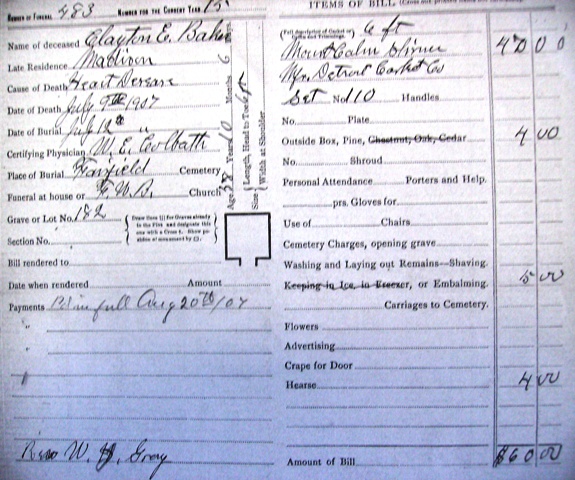 NUMBER OF FUNERAL 483 NUMBER FOR THE CURRENT YEAR 15
Name of deceased Clayton E. Baker
Late Residence Madison
Cause of Death Heart Desease
Date of Death July 9th 1907
Date of Burial July 12th "
Certifying Physician W. E. Colbath
Place of Burial Fairfield Cemetery
Funeral at house or F. W. B. Church
Grave or Lot No. 182
Section No.
Bill rendered to
Date when rendered Amount
Payments Pd in full Aug 20th/07
"
"
"
Rev W. H. Gray
Age 38 Years 10 Months 6 Days
Size Length, Head to Toe 6 ft
Width at Shoulder
Draw lines for Graves already in the Plot and designate this one with a Cross †. Show position of monument by
ITEMS OF BILL
6 ft
Mount Calm Shiner 47 00
Mfr. Detroit Casket Co
Set No 110 Handles
No. Plate
Outside Box, Pine, Chestnut, Oak, Cedar 4 00
No. Shroud
Personal Attendance Porters and Help.
prs. Gloves for
Use of Chairs
Cemetery Charges, opening grave
Washing and Laying out Remains—Shaving.
Keeping in Ice, in Freezer, or Embalming. 5 00
Carriages to Cemetery.
Flowers
Advertising
Crape for Door
Hearse 4 00
Amount of Bill $60 00